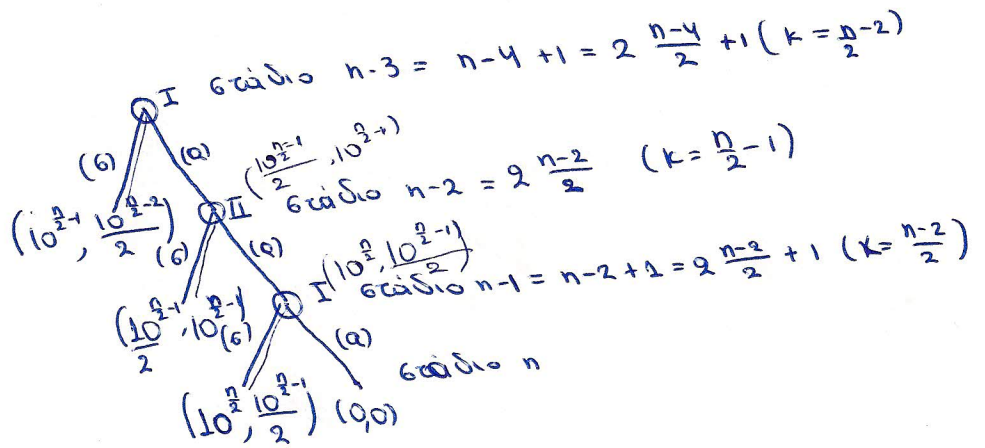 I στάδιο n-3 = n-4+1 = 2 \frac{n-4}{2} +1 (k = \frac{n}{2}-2)
(σ) (α) (\frac{10^{\frac{n}{2}-1}}{2}, 10^{\frac{n}{2}-1})
II στάδιο n-2 = 2 \frac{n-2}{2} (k = \frac{n}{2}-1)
(10^{\frac{n}{2}-1}, \frac{10^{\frac{n}{2}-2}}{2}) (σ) (α) (10^{\frac{n}{2}}, \frac{10^{\frac{n}{2}-1}}{2})
I στάδιο n-1 = n-2+1 = 2 \frac{n-2}{2} +1 (k = \frac{n-2}{2})
(\frac{10^{\frac{n}{2}-1}}{2}, 10^{\frac{n}{2}-1}) (σ) (α)
στάδιο n
(10^{\frac{n}{2}}, \frac{10^{\frac{n}{2}-1}}{2}) (0,0)